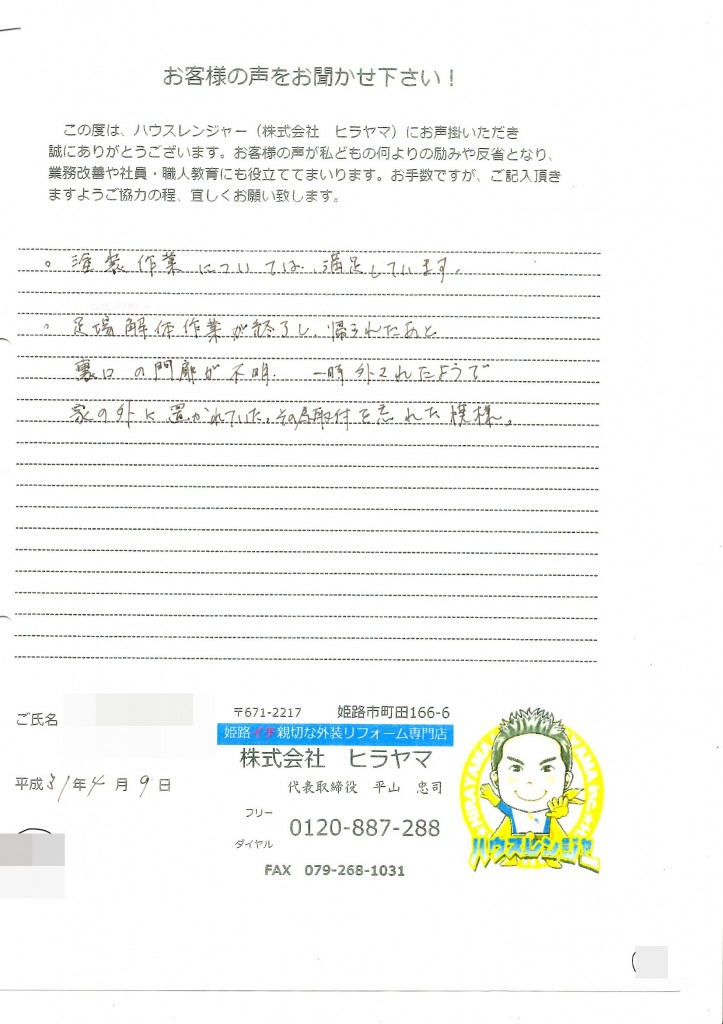 お客様の声をお聞かせ下さい！
この度は、ハウスレンジャー（株式会社　ヒラヤマ）にお声掛いただき
誠にありがとうございます。お客様の声が私どもの何よりの励みや反省となり、
業務改善や社員・職人教育にも役立ててまいります。お手数ですが、ご記入頂き
ますようご協力の程、宜しくお願い致します。
。塗装作業については、満足しています。
。足場解体作業が終了し、帰られたあと
裏口の門扉が不明. 一時外されたようで
家の外に置かれていた。その為取付を忘れた模様。
ご氏名
平成31年4月9日
〒671-2217　姫路市町田166-6
姫路イチ親切な外装リフォーム専門店
株式会社　ヒラヤマ
代表取締役　平山　忠司
フリー
ダイヤル
0120-887-288
FAX 079-268-1031
HIRAYAMA
ハウスレンジャー